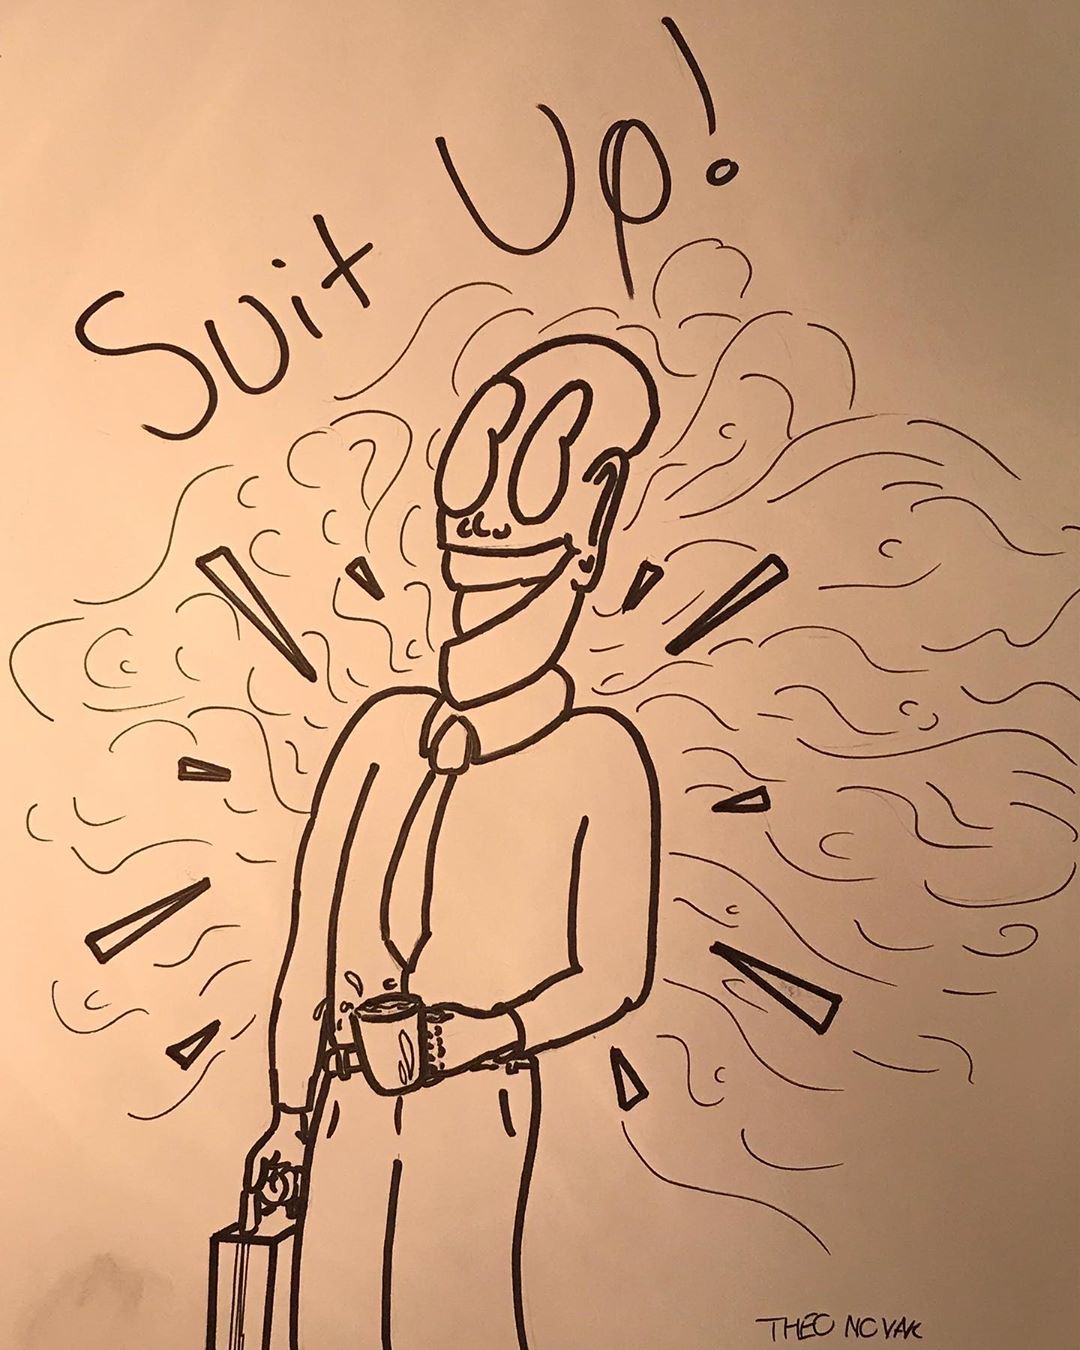 Suit Up!
THEO NOVAK